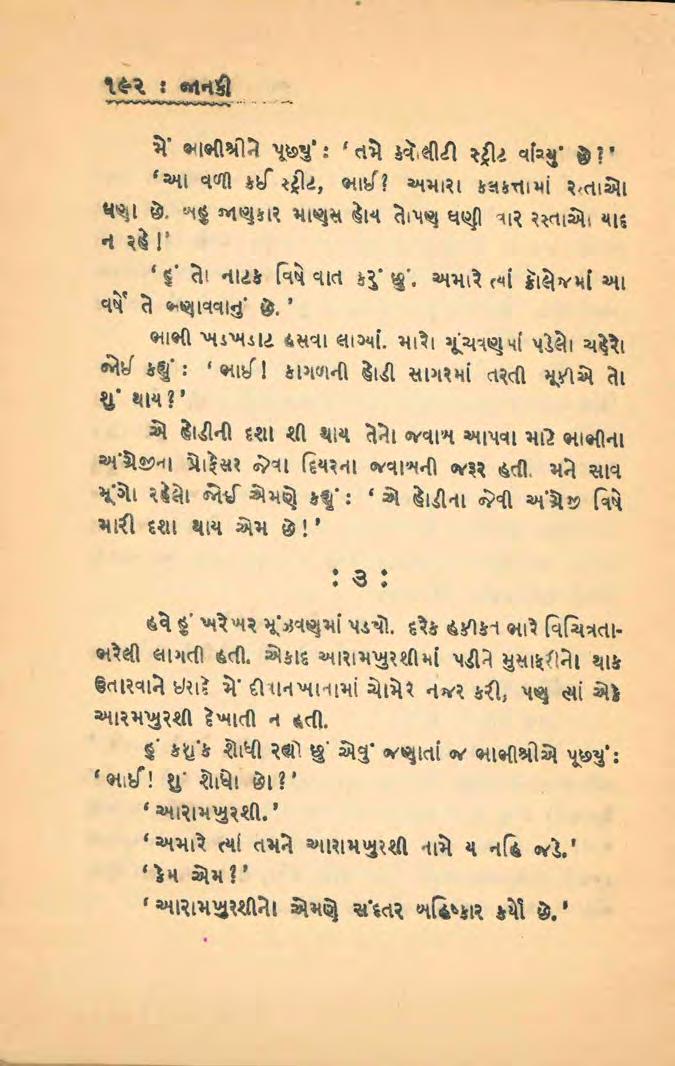 ૧૯૨ : જાનકી
મેં ભાભીશ્રીને પૂછ્યું : ‘તમે ક્વૉલીટી સ્ટ્રીટ વાંચ્યું છે?’
‘આ વળી કઈ સ્ટ્રીટ, ભાઈ? અમારા કલકત્તામાં રસ્તાઓ
ઘણા છે. બહુ જાણકાર માણસ હોય તોપણ ઘણી વાર રસ્તાઓ યાદ
ન રહે!’
‘હું તો નાટક વિષે વાત કરું છું. અમારે ત્યાં કૉલેજમાં આ
વર્ષે તે ભણાવવાનું છે.’
ભાભી ખડખડાટ હસવા લાગ્યાં. મારો ગૂંચવણમાં પડેલો ચહેરો
જોઈ કહ્યું : ‘ભાઈ! કાગળની હોડી સાગરમાં તરતી મૂકીએ તો
શું થાય?’
એ હોડીની દશા શી થાય તેનો જવાબ આપવા માટે ભાભીના
અંગ્રેજીના પ્રોફેસર જેવા દિયરના જવાબની જરૂર હતી. મને સાવ
મૂંગો રહેલો જોઈ એમણે કહ્યું : ‘એ હોડીના જેવી અંગ્રેજી વિષે
મારી દશા થાય એમ છે!’
: ૩ :
હવે હું ખરેખર મૂંઝવણમાં પડ્યો. દરેક હકીકત ભારે વિચિત્રતા-
ભરેલી લાગતી હતી. એકાદ આરામખુરશીમાં પડીને મુસાફરીનો થાક
ઉતારવાને ઇરાદે મેં દીવાનખાનામાં ચોમેર નજર કરી, પણ ત્યાં એકે
આરમખુરશી દેખાતી ન હતી.
હું કશુંક શોધી રહ્યો છું એવું જણાતાં જ ભાભીશ્રીએ પૂછ્યું :
‘ભાઈ! શું શોધો છો?’
‘આરામખુરશી.’
‘અમારે ત્યાં તમને આરામખુરશી નામે ય નહિ જડે.’
‘કેમ એમ?’
‘આરામખુરશીનો એમણે સંદતર બહિષ્કાર કર્યો છે.’